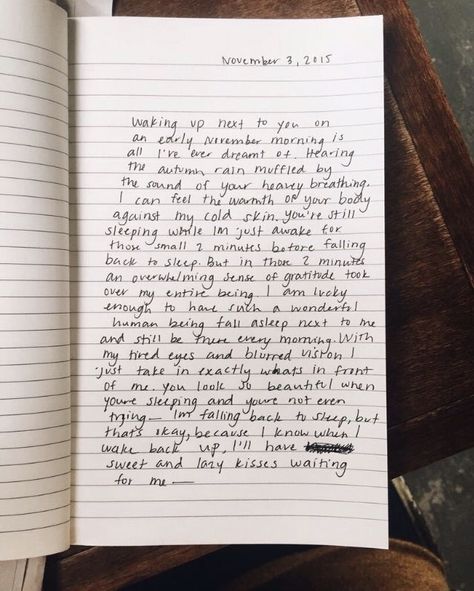 November 3, 2015
Waking up next to you on
an early november morning is
all I've ever dreamt of. Hearing
the autumn rain muffled by
the sound of your heavy breathing.
I can feel the warmth of your body
against my cold skin. you're still
sleeping while Im just awake for
those small 2 minutes before falling
back to sleep. But in those 2 minutes
an overwhelming sense of gratitude took
over my entire being. I am lucky
enough to have such a wonderful
human being fall asleep next to me
and still be there every morning. With
my tired eyes and blurred vision I
just take in exactly whats in front
of me. you look so beautiful when
youre sleeping and youre not even
trying— Im falling back to sleep, but
that's okay, because I know when I
wake back up, I'll have
sweet and lazy kisses waiting
for me —